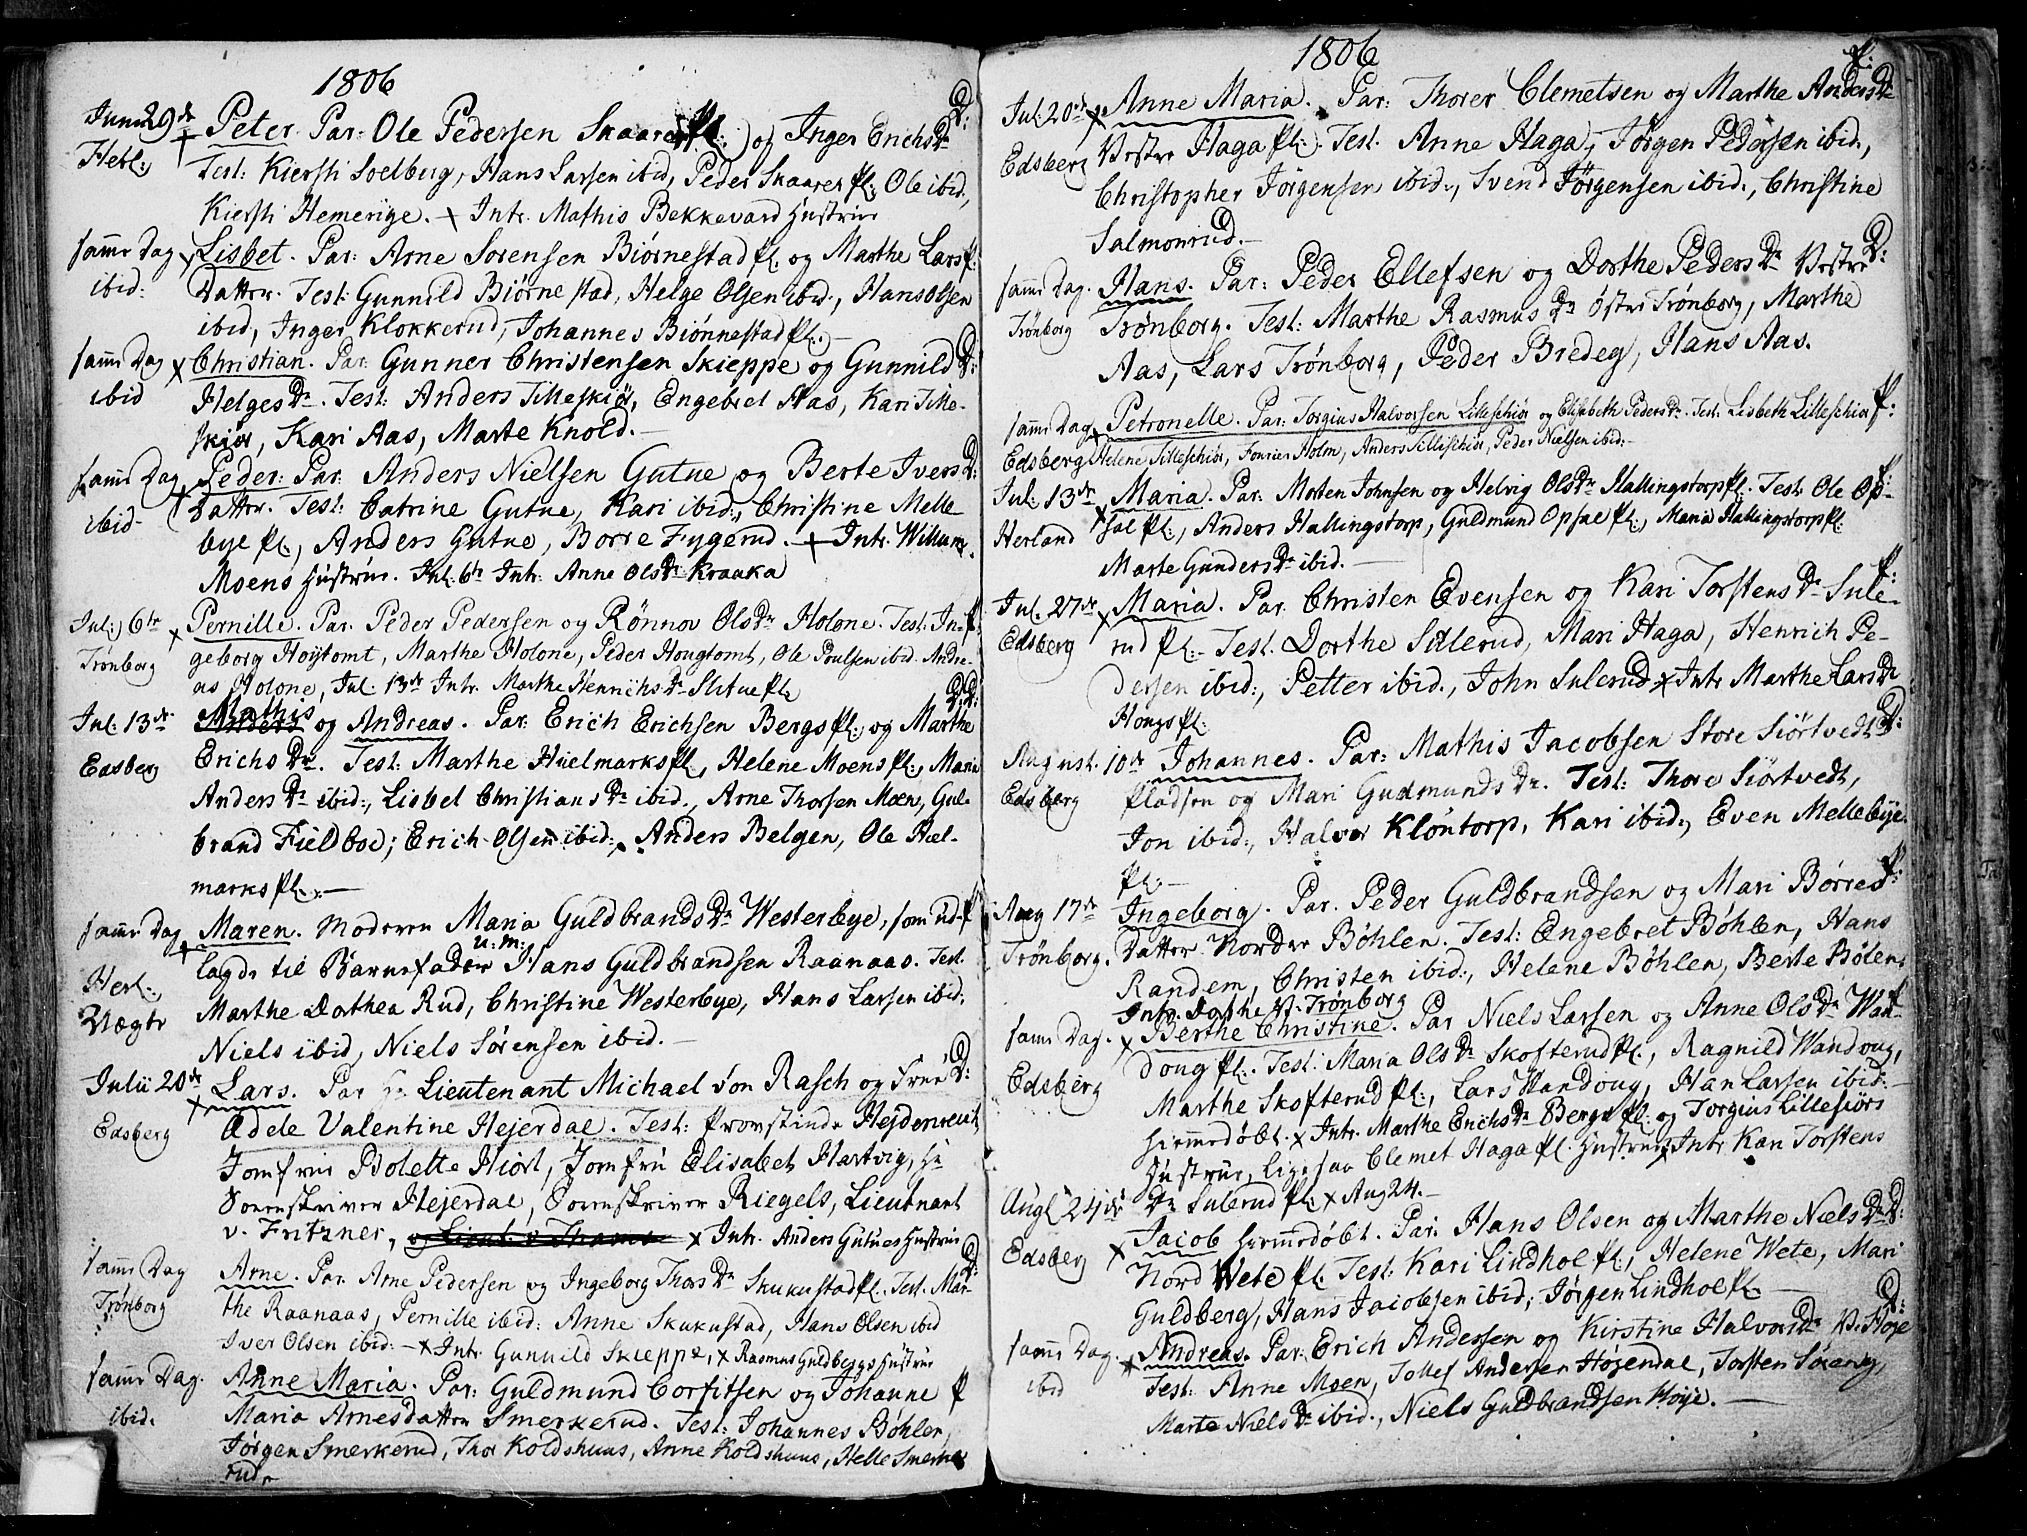 1806
Junii 29de Peter. Par: Ole Pedersen Skaarer Pl:) og Inger Erichs Dr D:
Herl: Test: Kiersti Soelberg, Hans Larsen ibid, Peder Skaarer Pl: Ole ibid,
Kiersti Hemerige. + Intr. Mathis Bekkevard Hustrue
samme Dag Lisbet. Par: Arne Sorensen Biørnestad Pl. og Marthe Lars f:
ibid: Datter. Test: Gunnild Biørnestad, Helge Olsen ibid., Hans Olsen
ibid, Inger Klokkerud, Johannes Biønnestad Pl.) —
samme Dag Christian. Par: Gunner Christensen Skieppe og Gunnild D:
ibid Helges Dr. Test: Anders Tilleskiør, Engebret Aas, Kari Tille-
skiør, Kari Aas, Marte Knold. —
samme Dag Peder: Par: Anders Nielsen Gutue og Berte Ivers D:
ibid- Datter. Test: Catrine Gutue, Kari ibid:, Christine Melle
bye Pl., Anders Gutue, Borre Fygerud. — + Intr. Willum
Moens Hustrue. Jul. 6te Intr: Anne Ols Dr Kraaka
Jul: 6te Pernille. Par. Peder Pedersen og Rønnov Ols Dr Holone. Test: In- f.
Trønborg geborg Hoytomt, Marthe Holone, Peder Hougtomt, Ole Poulsen ibid. Andre-
as Holone, Jul: 13de Intr. Marthe Henrichs Dr Slitue Pl.
Mathis D: D:
Jul: 13de Anders og Andreas. Par: Erich Erichsen Bergs Pl: og Marthe
Edsberg Erichs Dr. Test: Marthe Huelmarks Pl, Helene Moens Pl:, Maria
Anders Dr ibid:, Lisbel Christians Dr ibid., Arne Thorsen Moen, Gul-
brand Fieldboe; Erich Olsen ibid:, Anders Belgen, Ole Hul-
marks Pl.: —
samme Dag Maren. Moderen Maria Guldbrands Dr Westerbye, som ud- f
u: m:
Herl: lagde til Barnefader Hans Guldbrandsen Raanaas. Test.
Nægte Marthe Dorthea Rud, Christine Westerbye, Hans Larsen ibid,
Niels ibid, Niels Sørensen ibid. —
Julii 20de Lars. Par Hr Lieutenant Michael von Rasch og Frue D:
Edsberg Adele Valentine Hejerdal. Test: Provstinde Hejdenreich
Jomfrue Bolette Hiort, Jomfru Elisabet Hartvig, Hr
Sorenskriver Hejerdal, Sorenskriver Riegels, Lieutnant
v. Fritzner, og Lieut: v Thams x Intr. Anders Gutues Hustrue
samme Dag Arne. Par. Arne Pedersen og Ingeborg Thors Dr Skukustad Pl. Test. Mar- D:
Trønborg the Raanaas, Pernille ibid: Anne Skukustad, Hans Olsen ibid
Iver Olsen ibid: — x Intr. Gunnild Skieppe, x Rasmus Guldbergs Hustrue
samme Dag. Anne Maria. Par: Guldmund Corfitsen og Johanne f
ibid. Maria Arnesdatter Smerkerud. Test: Johannes Bøhler,
Jørgen Smerkerud, Thor Koldshuus, Anne Koldshuus, Helle Smerke
rud.
1806
f:
Jul: 20de Anne Maria. Par: Thorer Clemetsen og Marthe Anders Dr
Edsberg Vestre Haga Pl:). Test. Anne Haga, Jørgen Pedersen ibid,
Christopher Jørgensen ibid:, Svend Jørgensen ibid:, Christine
Salmonrud. —
samme Dag. Hans. Par: Peder Ellefsen og Dorthe Peders Dr Vestre D:
Trønborg Trønborg. Test: Marthe Rasmus Dr Øster Trønborg, Marthe
Aas, Lars Trønborg, Peder Bredeg, Hans Aas.
samme Dag Petronelle. Par: Torgius Halvorsen Lilleschiør og Elisabeth Peders Dr. Test: Lisbeth Lilleschiør f:
Edsberg Helene Lilleschiør, Fourier Holm, Anders Lilleschiør, Peder Nielsen ibid: —
Jul: 13de Maria. Par: Morten Johnsen og Helvig Ols Dr Hallingstorp Pl. Test: Ole Op- f:
Herland sal Pl:, Anders Hallingstorp, Guldmund Opsal Pl:, Maria Hallingstorp Pl:
Marte Gunders Dr ibid. —
Jul. 27de Maria. Par. Christen Evensen og Kari Torstens Dr Sule- f:
Edsberg rud Pl: - Test. Dorthe Sulerud, Mari Haga, Henrich Pe-
dersen ibid:, Petter ibid., John Sulerud x Intr Marthe Lars Dr
Hougs Pl:
August. 10de Johannes. Par: Mathis Jacobsen Store Siørtvedt D:
Edsberg Pladsen og Mari Gudmunds Dr. Test: Thore Siørtvedt,
Jon ibid:, Halvor Kløntorp, Kari ibid:, Even Mellebye
Pl: —
Aug 17de Ingeborg. Par. Peder Guldbrandsen og Mari Børres f:
Trønborg. Datter Nordre Bøhlen. Test: Engebret Bøhlen, Hans
Randem, Christen ibid:, Helene Bøhlen, Berte Bølen,
Intr. Dorthe V. Trønborg
samme Dag. Berthe Christine. Par Niels Larsen og Anne Ols Dr Wan- f
Edsberg doug Pl:. Test: Maria Ols Dr Skofterud Pl:, Ragnild Wandoug,
Marthe Skofterud Pl:, Lars Wandoug, Han Larsen ibid: —
Hiemmedøbt. x Intr. Marthe Erichs Dr Bergs Pl: og Torgius Lillesiørs
Hustrue, ligesaa Clemet Haga Pl: Hustrue x Intr Kari Torstens
Dr Sulerud Pl: x Aug 24. —
Augt 24de Jacob hiemmedøbt. Par: Hans Olsen og Marthe Niels Dr D:
Edsberg Nord Wete Pl. Test: Kari Lindhol Pl:, Helene Wete, Mari
Guldberg, Hans Jacobsen ibid; Jørgen Lindhol Pl. —
samme Dag. Andreas. Par: Erich Andersen og Kirstine Halvors Dr V. Høje D:
ibid Test: Anne Moen, Tollef Andersen Højendal, Torsten Sørensen,
Marte Niels Dr ibid., Niels Guldbrandsen Høje. —